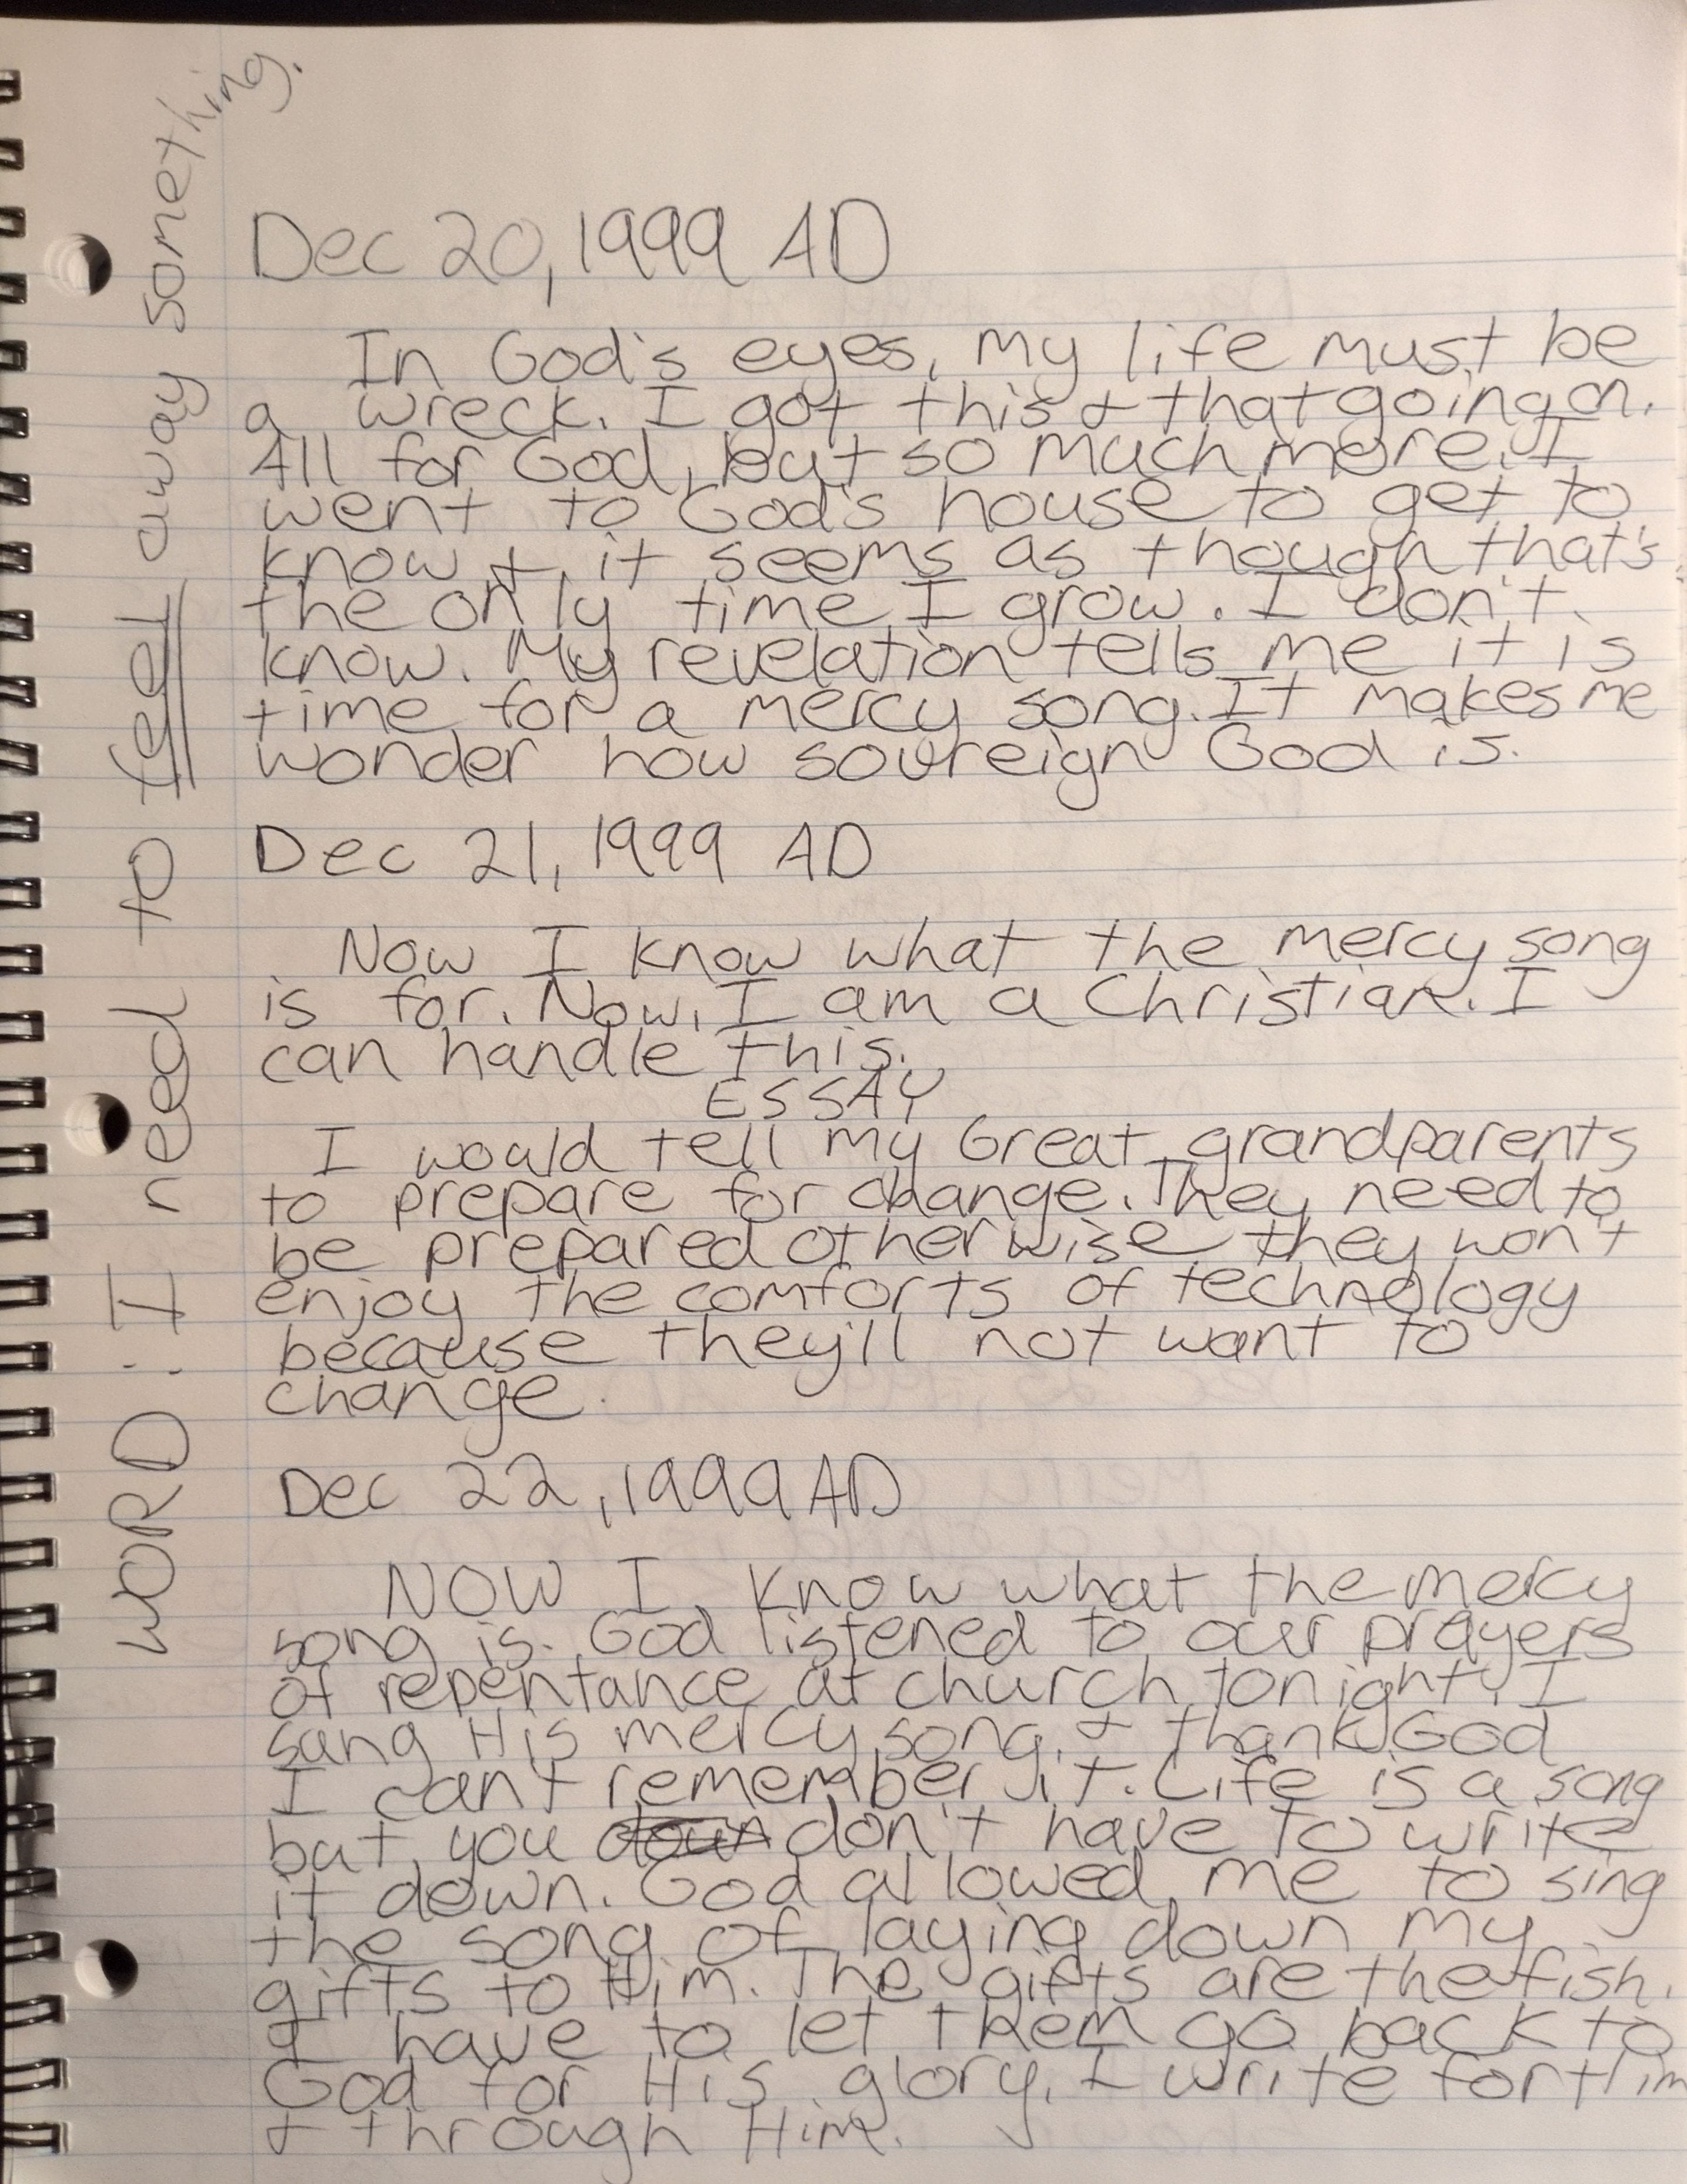 WORD: I need to feel away something.
Dec 20, 1999 AD
In God's eyes, my life must be
a wreck. I got this & that going on.
All for God, but so much more. I
went to God's house to get to
know & it seems as though that's
the only time I grow. I don't
know. My revelation tells me it is
time for a mercy song. It makes me
wonder how sovreign God is.
Dec 21, 1999 AD
Now I know what the mercy song
is for. Now, I am a Christian. I
can handle this.
ESSAY
I would tell my Great grandparents
to prepare for change. They need to
be prepared otherwise they won't
enjoy the comforts of technology
because they'll not want to
change.
Dec 22, 1999 AD
NOW I know what the mercy
song is. God listened to our prayers
of repentance at church tonight. I
sang His mercy song, & thank God
I can't remember it. Life is a song
but you don't have to write
it down. God allowed me to sing
the song of laying down my
gifts to Him. The gifts are the fish.
I have to let them go back to
God for His glory. I write for Him
& through Him.